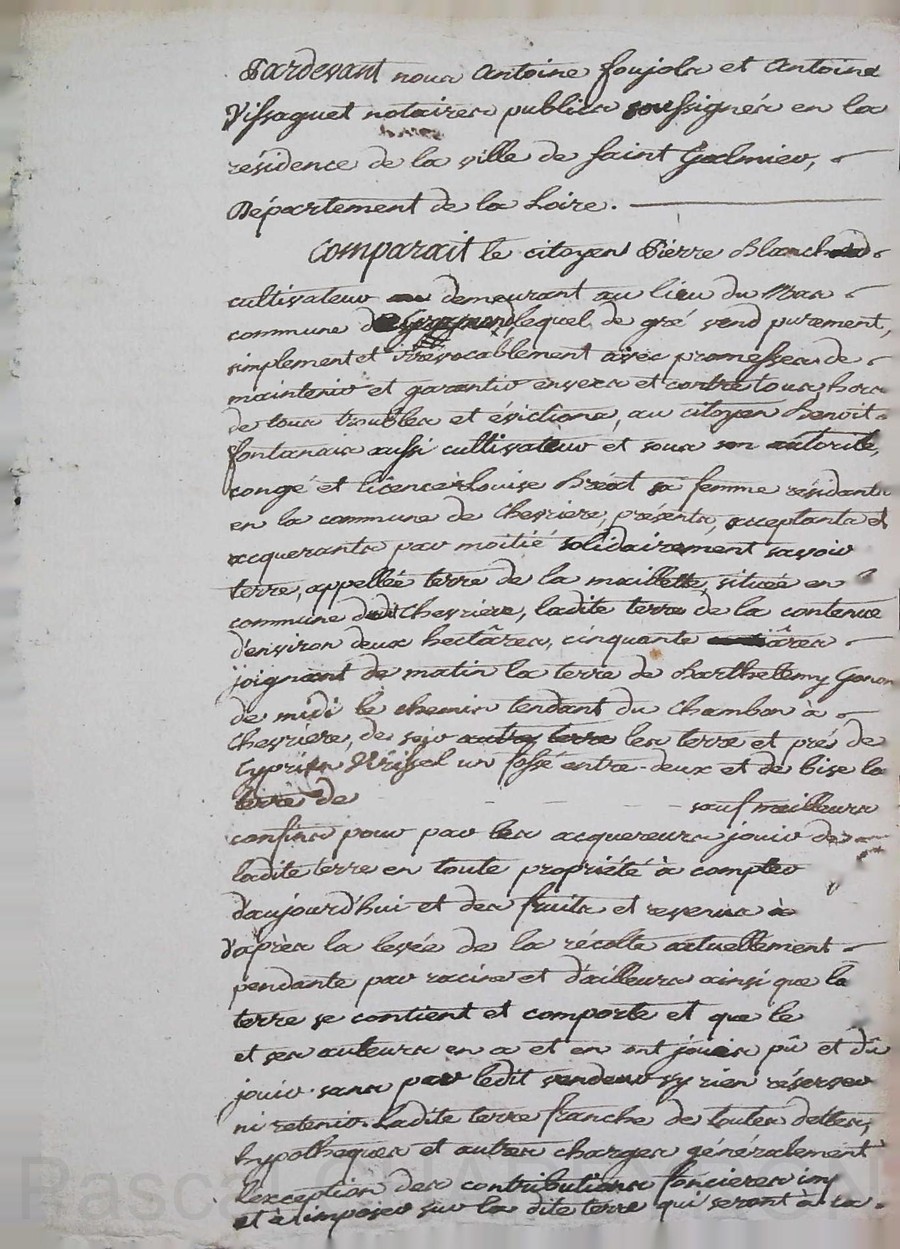 Pardevant nous Antoine foujols et Antoine
Vissaguet notaires publics soussignés en la
résidence de la ville de Saint Galmier,
Département de la Loire.
Comparait le citoyen Pierre Blanchard
cultivateur demeurant au lieu du Mas
commune de lequel de gré vend purement,
simplement et irrévocablement avec promesses de
maintenir et garantir envers et contre tous, hors
de tous troubles et évictions, au citoyen Benoit
fontanais aussi cultivateur et sous son autorité,
congé et licence Louise Bréat sa femme résidants
en la commune de Chevriere, présents, acceptants et
acquerants par moitié solidairement savoir
terre, appellée terre de la maillette, située en
commune dudt Chevrière, ladite terre de la contenue
d'environ deux hectâres, cinquante âres
joignant de matin la terre de Barthelemy Gonon
de midi le chemin tendant du Chambon à
Chevriere, de soir autre terre les terre et prés de
Cyprien un fossé entre-deux et de bise la
terre de sauf meilleurs
confins pour par les acquereurs jouir de
ladite terre en toute propriété à compter
d'aujourd'hui et des fruits et revenus à
d'après la levée de la récolte actuellement
pendante par racine et d'ailleurs ainsi que la
terre se contient et comporte et que le
et ses auteurs en a et en ont jouis pû et dû
jouir sans par ledit vendeur s'y rien réserver
ni retenir. Ladite terre franche de toutes dettes,
hypotheques et autres charges généralement
l'exception des contributions foncieres imp
et à imposer sur la dite terre qui seront à la
Pascal CHAMBON